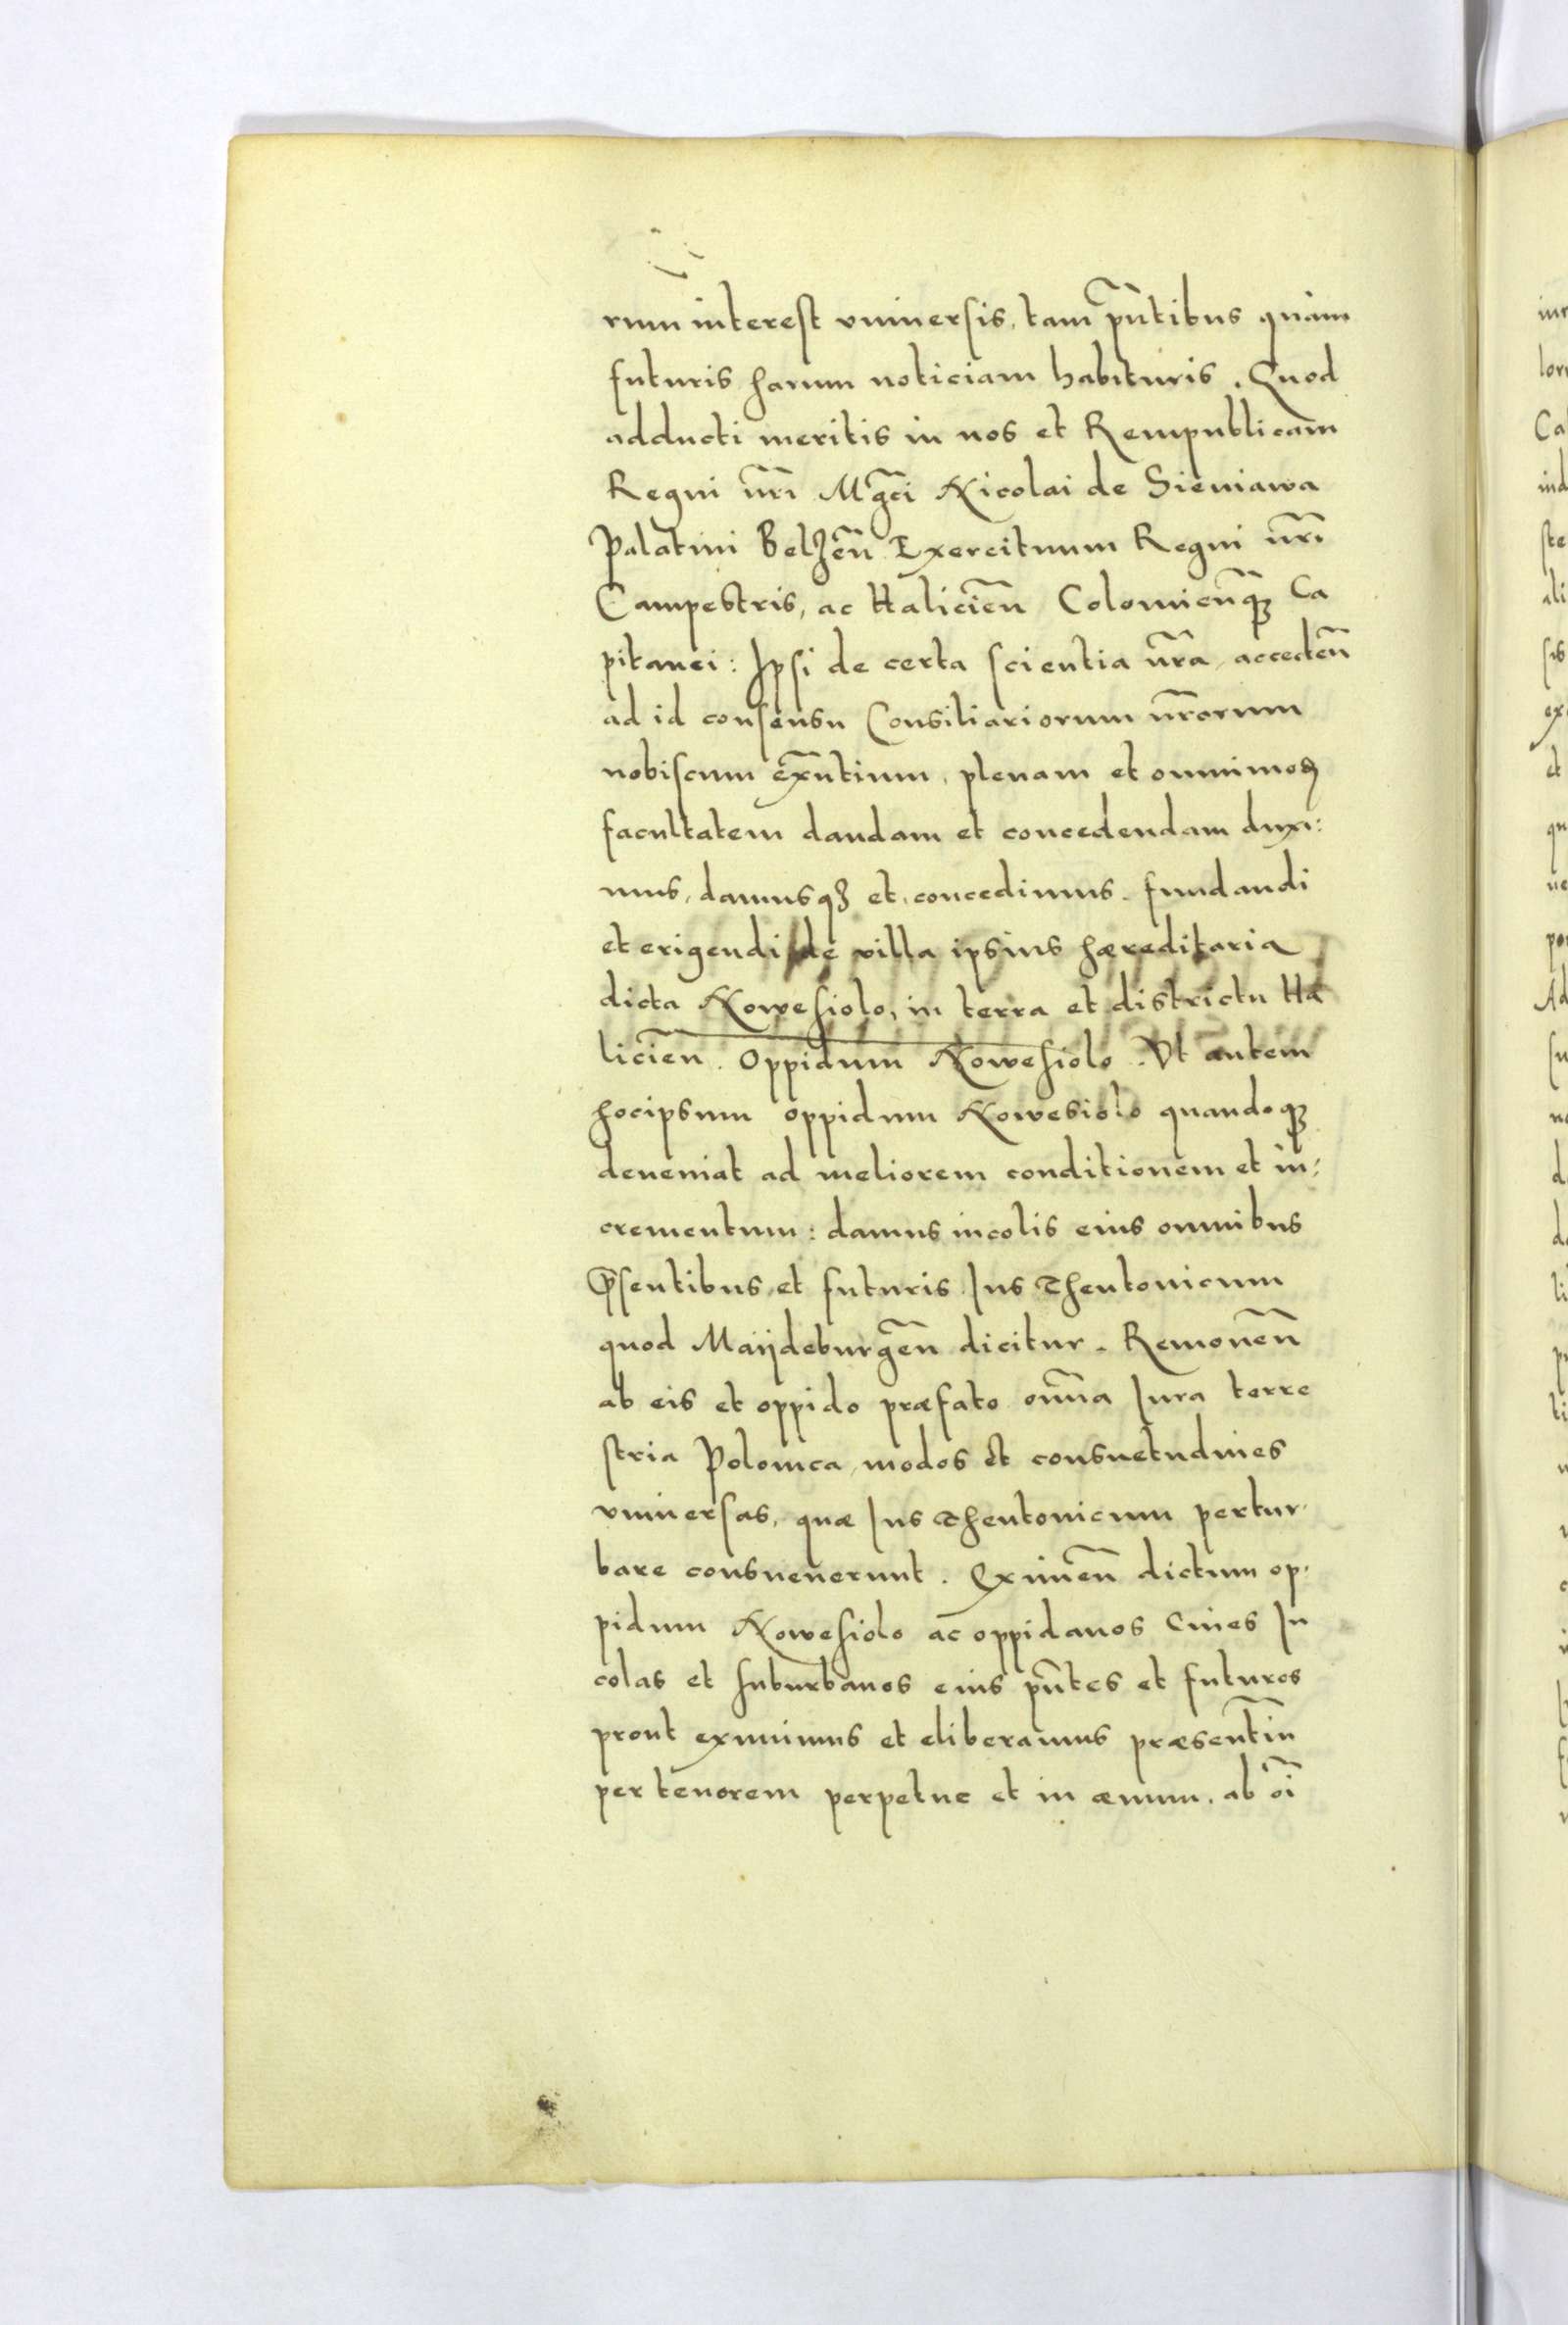 rum interest vniuersis, tam pn̄tibus quàm
futuris harum noticiam habituris. Quod
adducti meritis in nos et Rempublicam
Regni nr̄i Mḡci Nicolai de Sieniawa
Palatini Belzen̄ Exercituum Regni nr̄i
Campestris, ac Halicien̄ Colomien̄qꝫ Ca
pitanei: Ipsi de certa scientia nr̄a, acceden̄
ad id consensu Consiliariorum nr̄orum
nobiscum ex̄ntium, plenam et omnimoḋ
facultatem dandam et concedendam duxi:
mus, damusqꝫ et concedimus. fundandi
et erigendi de villa ipsius hæreditaria
dicta Nowesiolo, in terra et districtu Ha
licien̄. Oppidum Nowesiolo. Vt autem
hocipsum oppidum Nowesiolo quandoqꝫ
deueniat ad meliorem conditionem et in:
crementum: damus incolis eius omnibus
p̄sentibus et futuris Ius Theutonicum
quod Maijdeburgen̄ dicitur. Remouen̄
ab eis et oppido præfato omn̄ia Iura terre
stria Polonica, modos et consuetudines
vniuersas, quæ Ius Theutonicum pertur,
bare consueuerunt. Eximen̄ dictum op,
pidum Nowesiolo ac oppidanos Ciues In
colas et suburbanos eius pn̄tes et futuros
prout eximimus et eliberamus præsentin̄
per tenorem perpetue et in æuum, ab oī